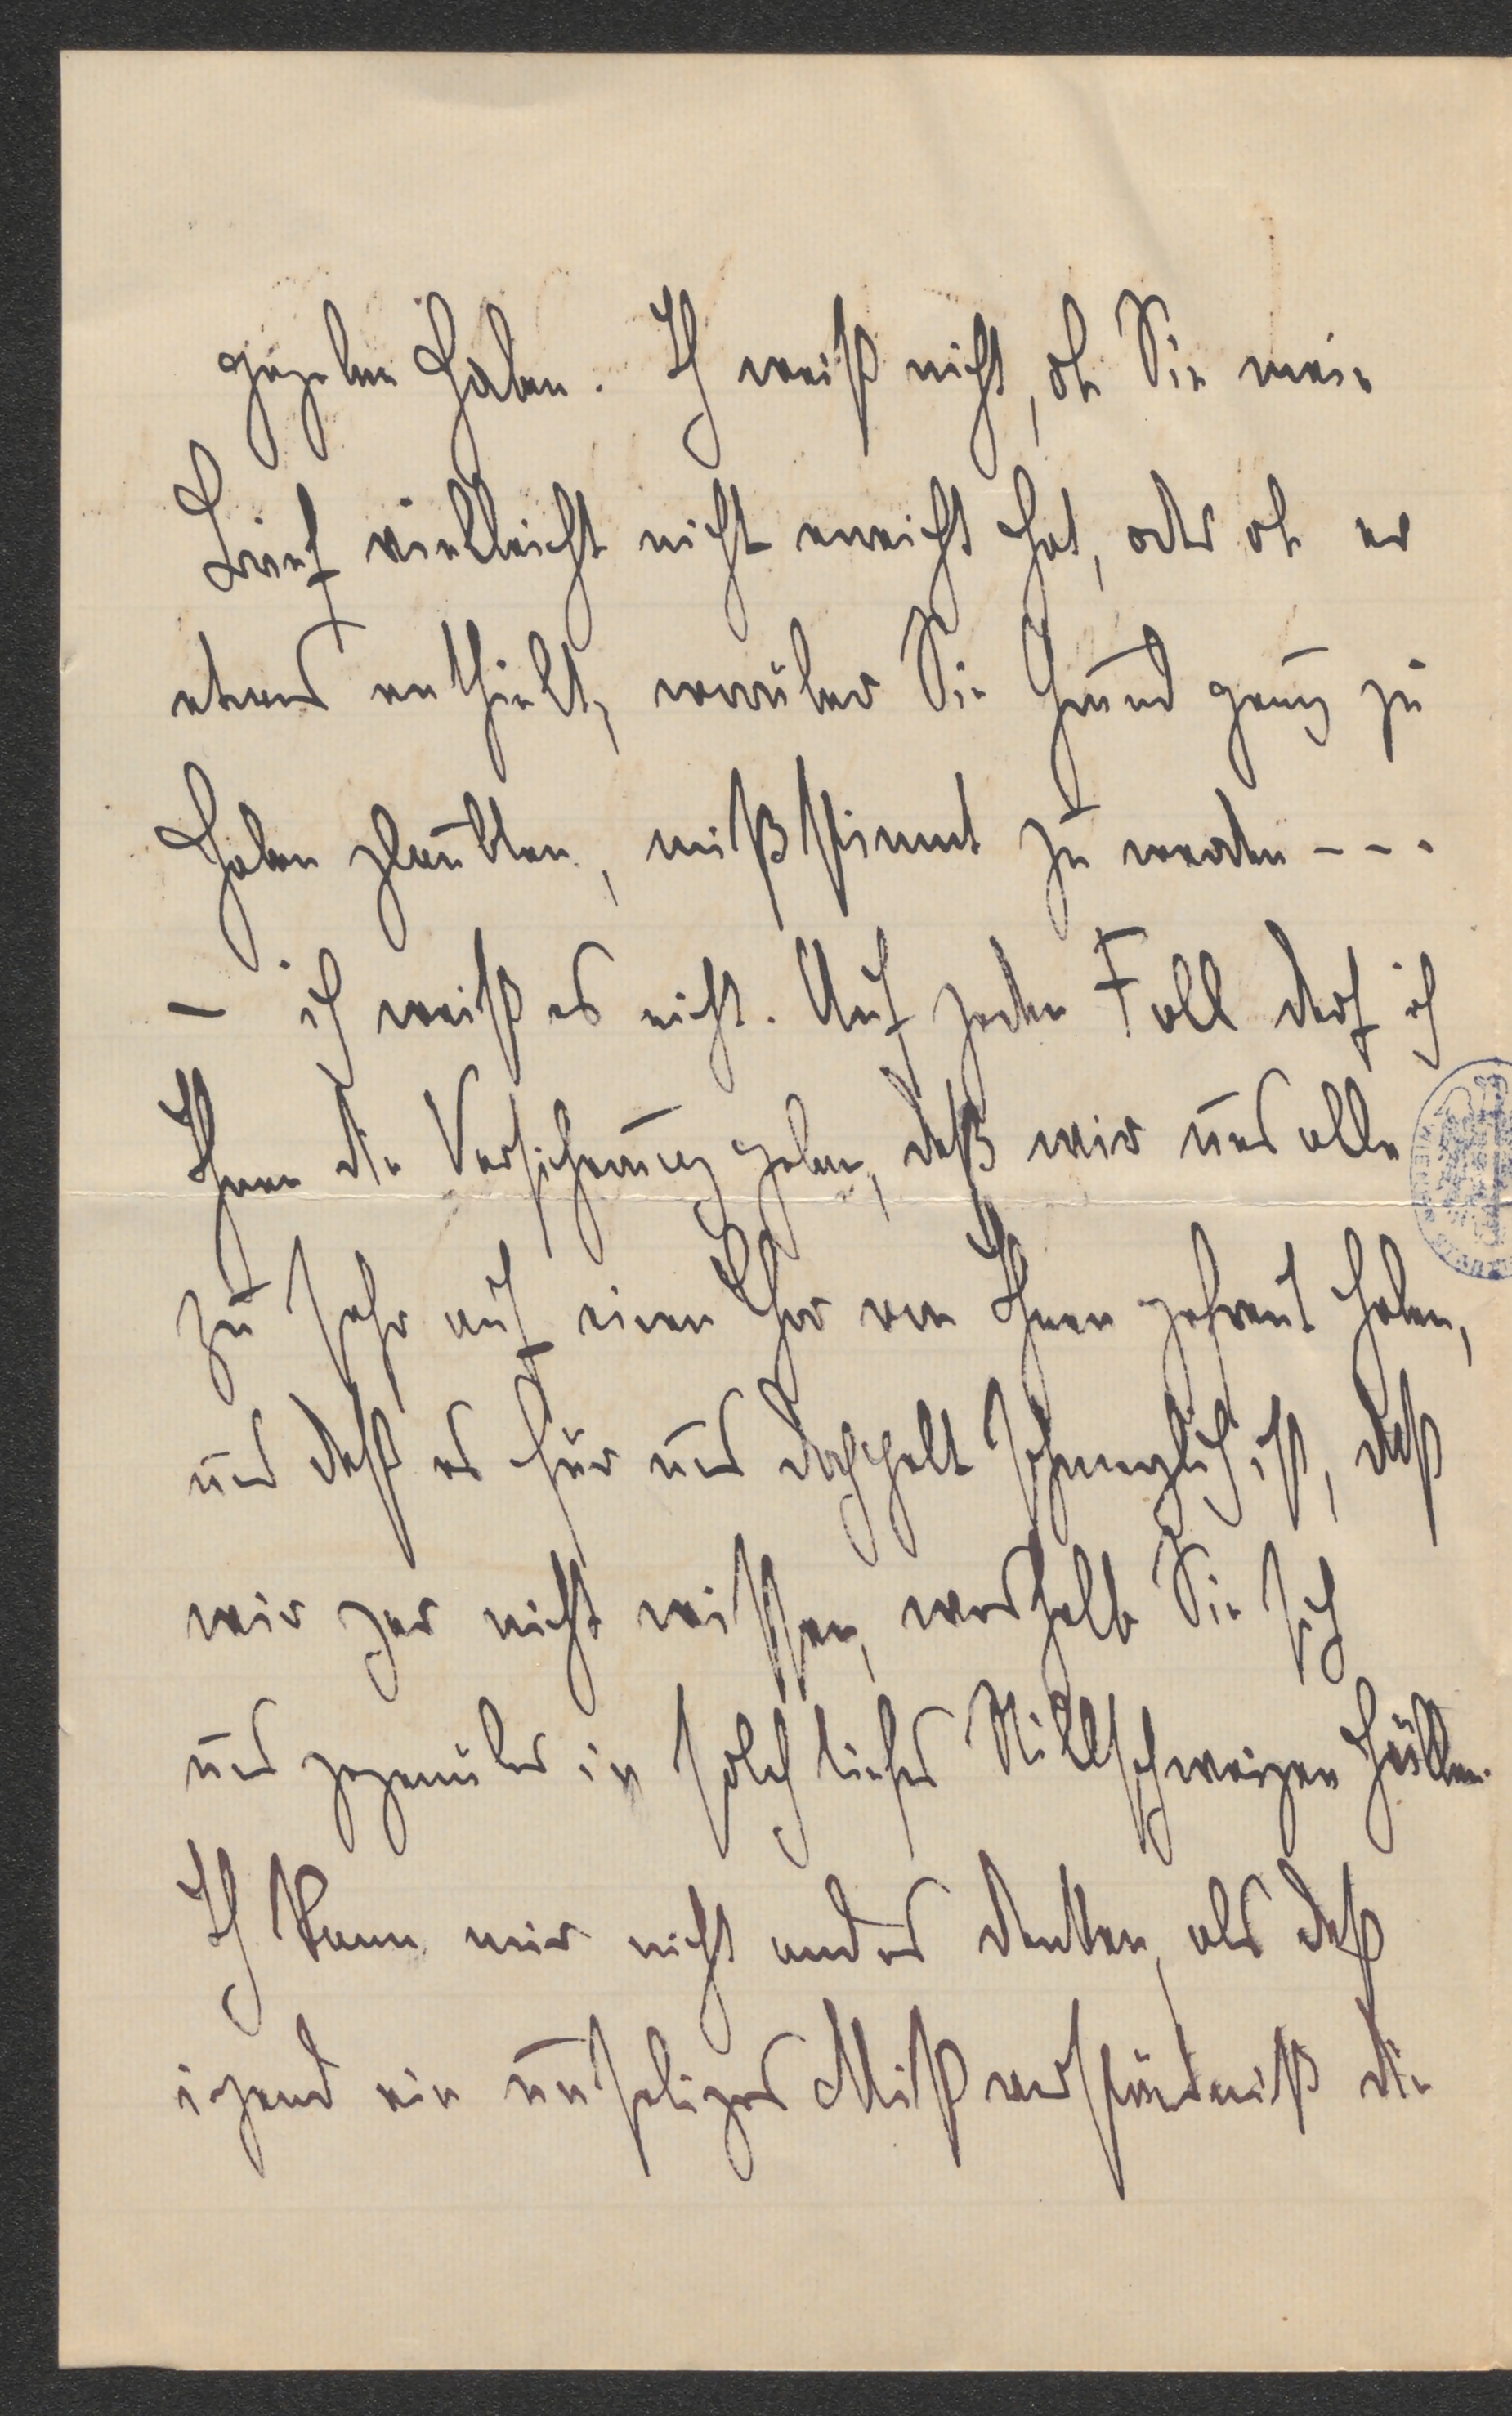 gegeben haben. Ich weiß nicht, ob Sie mein
Brief vielleicht nicht erreicht hat, oder ob er
etwas enthielt, worüber Sie Grund genug zu
haben glaubten, mißstimmt zu werden - - -
– ich weiß es nicht. Auf jeden Fall darf ich
Ihnen die Versicherung geben, daß wir uns alle
zu sehr auf einen Chor von Ihnen gefreut haben,
und daß es für uns doppelt schmerzlich ist, daß
wir gar nicht wissen, weshalb Sie sich
uns gegenüber in solch tiefes Stillschweigen hüllen.
Ich kann mir nicht anders denken, als daß
irgend ein unseliges Mißverständniß die